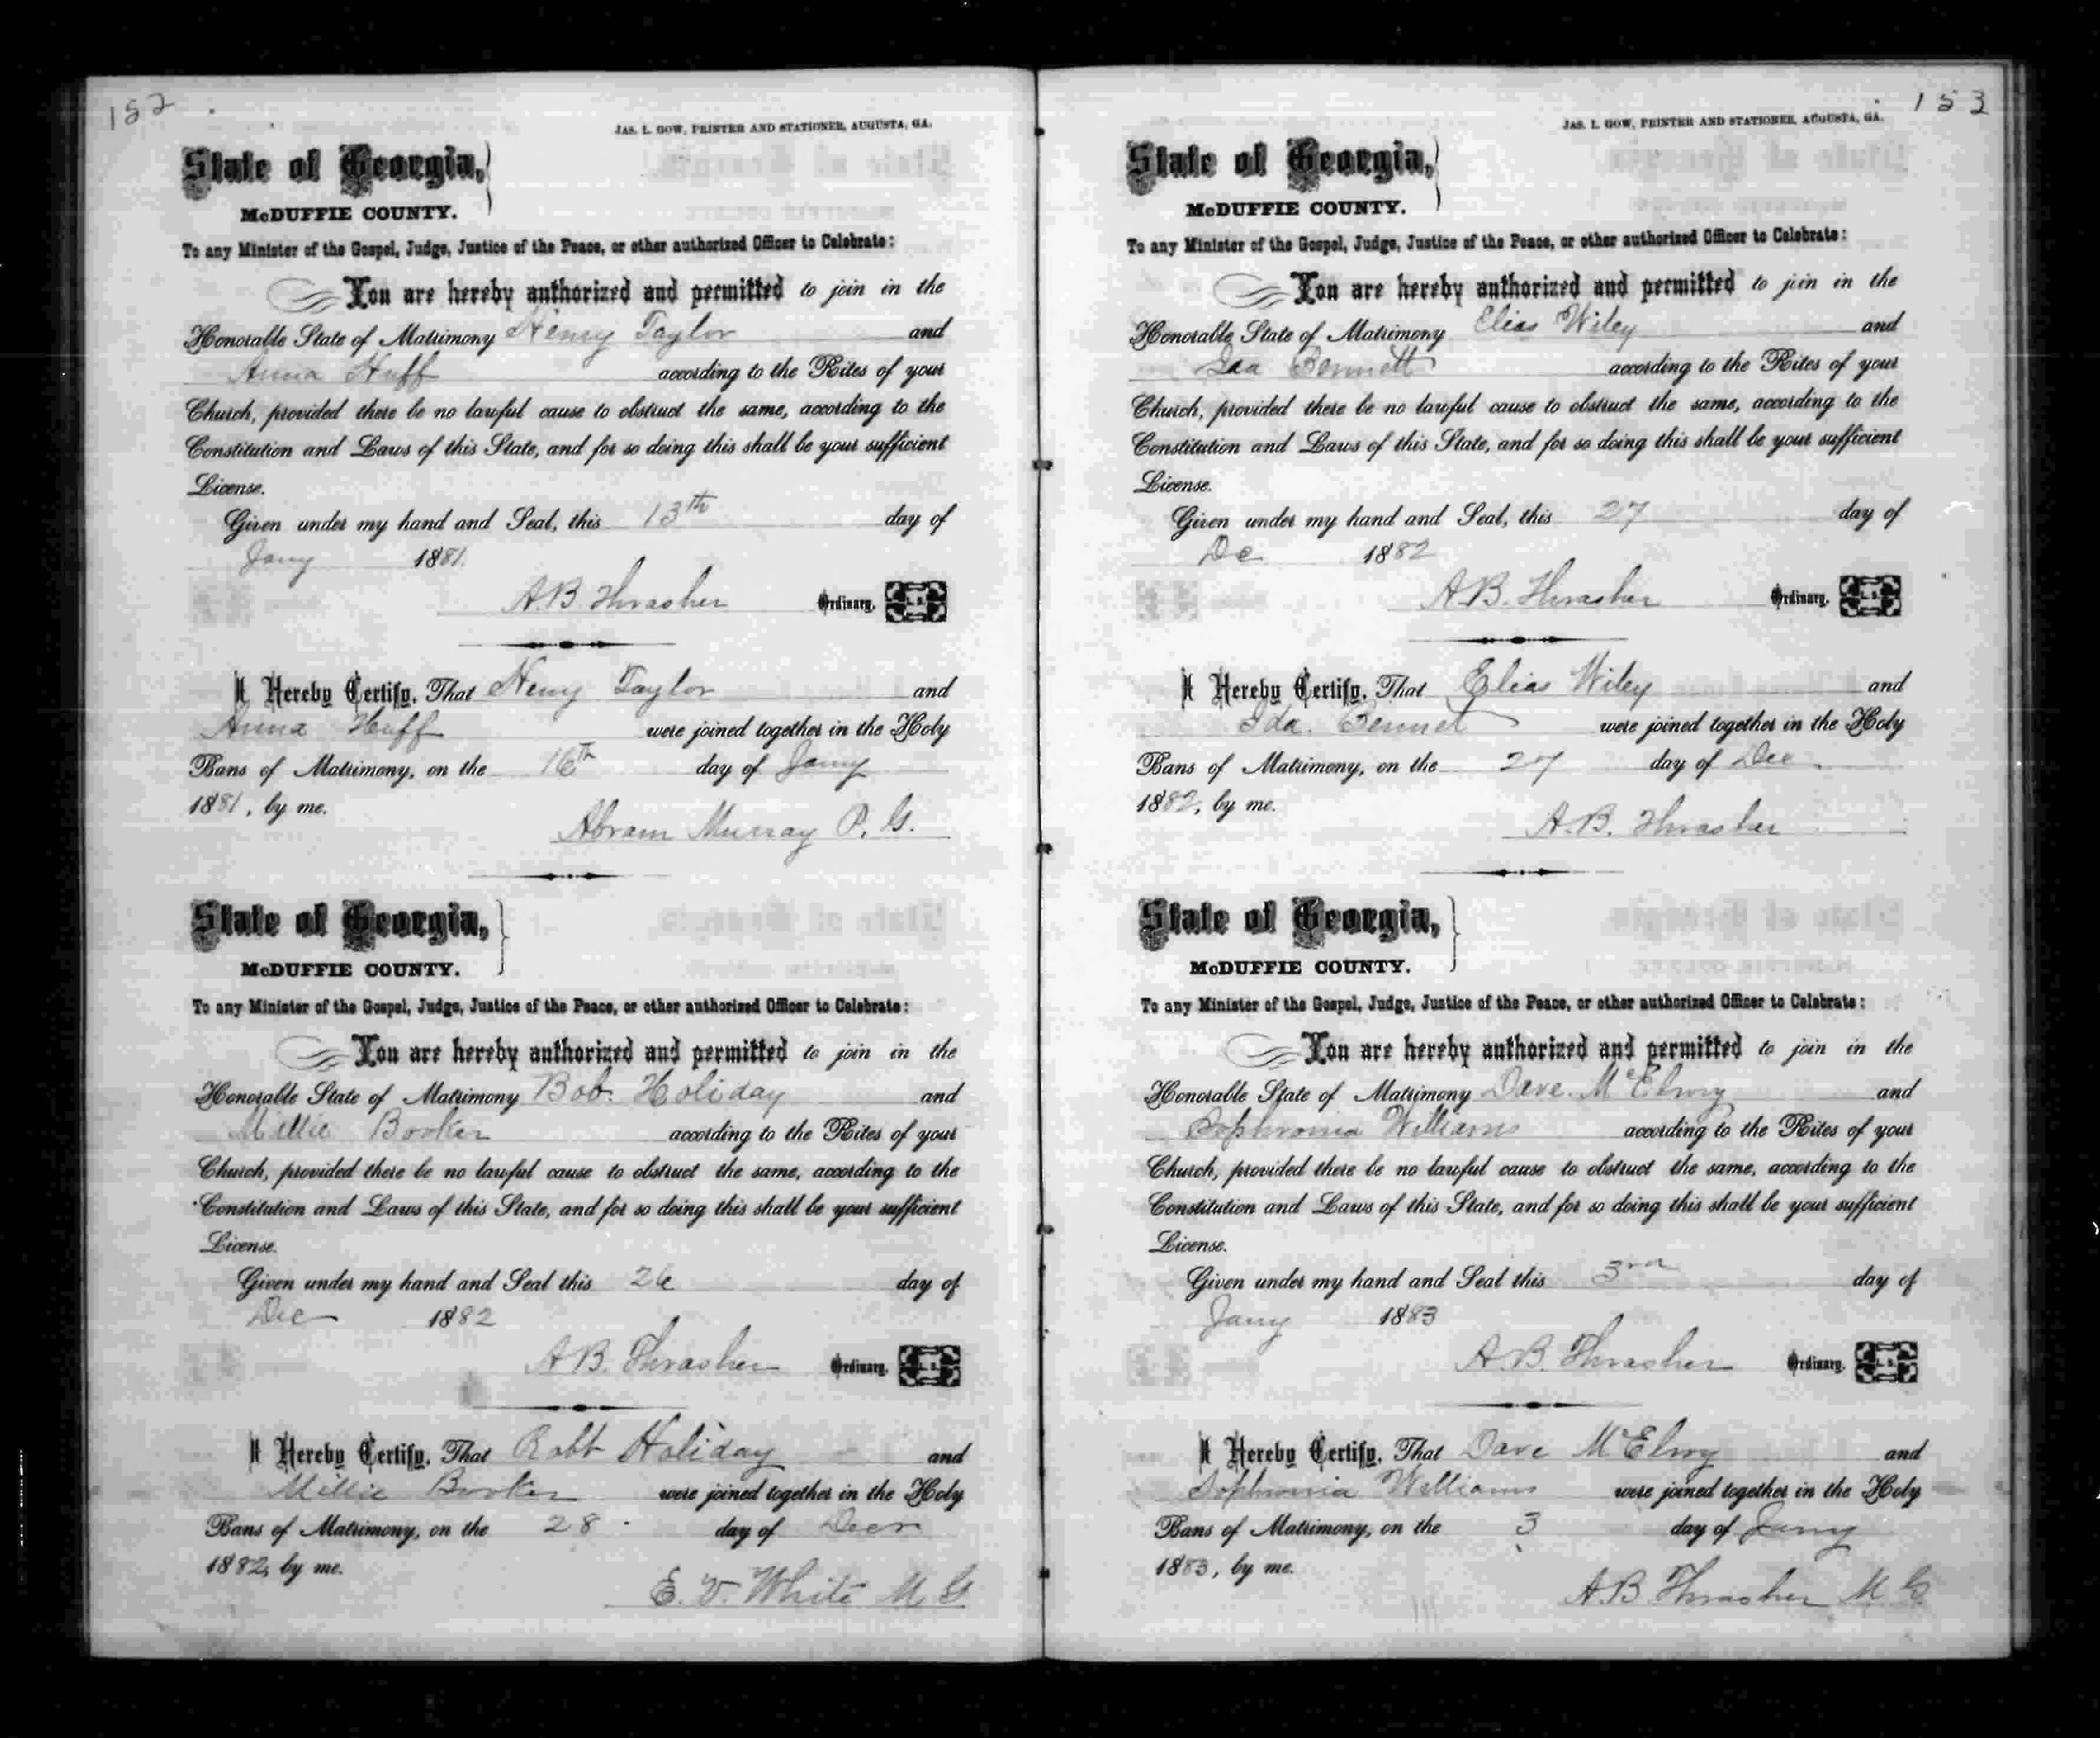 152
JAS. L. GOW, PRINTER AND STATIONER, AUGUSTA, GA.
State of Georgia,
McDUFFIE COUNTY.
To any Minister of the Gospel, Judge, Justice of the Peace, or other authorized Officer to Celebrate:
You are hereby authorized and permitted to join in the
Honorable State of Matrimony Henry Taylor and
Anna Huff according to the Rites of your
Church, provided there be no lawful cause to obstruct the same, according to the
Constitution and Laws of this State, and for so doing this shall be your sufficient
License.
Given under my hand and Seal, this 13th day of
Jany 1881.
A.B. Thrasher Ordinary. L. S.
I Hereby Certify, That Henry Taylor and
Anna Huff were joined together in the Holy
Bans of Matrimony, on the 16th day of Jany
1881, by me.
Abram Murray P. G.
State of Georgia,
McDUFFIE COUNTY.
To any Minister of the Gospel, Judge, Justice of the Peace, or other authorized Officer to Celebrate:
You are hereby authorized and permitted to join in the
Honorable State of Matrimony Bob. Holiday and
Millie Booker according to the Rites of your
Church, provided there be no lawful cause to obstruct the same, according to the
Constitution and Laws of this State, and for so doing this shall be your sufficient
License.
Given under my hand and Seal this 26 day of
Dec 1882
A.B. Thrasher Ordinary. L. S.
I Hereby Certify, That Robt Holiday and
Millie Booker were joined together in the Holy
Bans of Matrimony, on the 28 day of Decr
1882, by me.
E. V. White M G
153
JAS. L. GOW, PRINTER AND STATIONER, AUGUSTA, GA.
State of Georgia,
McDUFFIE COUNTY.
To any Minister of the Gospel, Judge, Justice of the Peace, or other authorized Officer to Celebrate:
You are hereby authorized and permitted to join in the
Honorable State of Matrimony Elias Wiley and
Ida Bennett according to the Rites of your
Church, provided there be no lawful cause to obstruct the same, according to the
Constitution and Laws of this State, and for so doing this shall be your sufficient
License.
Given under my hand and Seal, this 27 day of
De 1882
A.B. Thrasher Ordinary. L. S.
I Hereby Certify, That Elias Wiley and
Ida. Bennet were joined together in the Holy
Bans of Matrimony, on the 27 day of Dec
1882, by me.
A.B. Thrasher
State of Georgia,
McDUFFIE COUNTY.
To any Minister of the Gospel, Judge, Justice of the Peace, or other authorized Officer to Celebrate:
You are hereby authorized and permitted to join in the
Honorable State of Matrimony Dave. McElroy and
Sophronia Williams according to the Rites of your
Church, provided there be no lawful cause to obstruct the same, according to the
Constitution and Laws of this State, and for so doing this shall be your sufficient
License.
Given under my hand and Seal this 3rd day of
Jany 1883
A.B. Thrasher Ordinary. L. S.
I Hereby Certify, That Dave McElroy and
Sophronia Williams were joined together in the Holy
Bans of Matrimony, on the 3 day of Jany
1883, by me.
A.B Thrasher M G